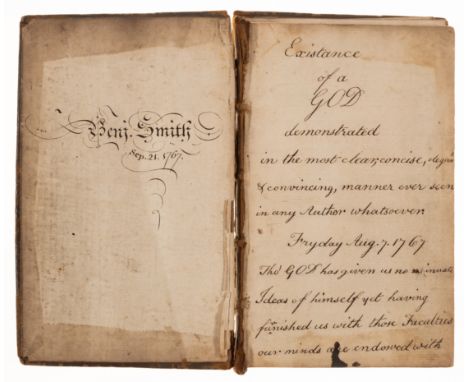 Benj. Smith
Sep. 21. 1767.
Existance
of a
GOD
demonstrated
in the most clear, concise,
& convincing, manner ever seen
in any Author whatsoever
Fryday Aug. 7. 1767
Tho' GOD has given us no innate
Ideas of himself yet having
furnished us with those Faculties
our minds are endowed with